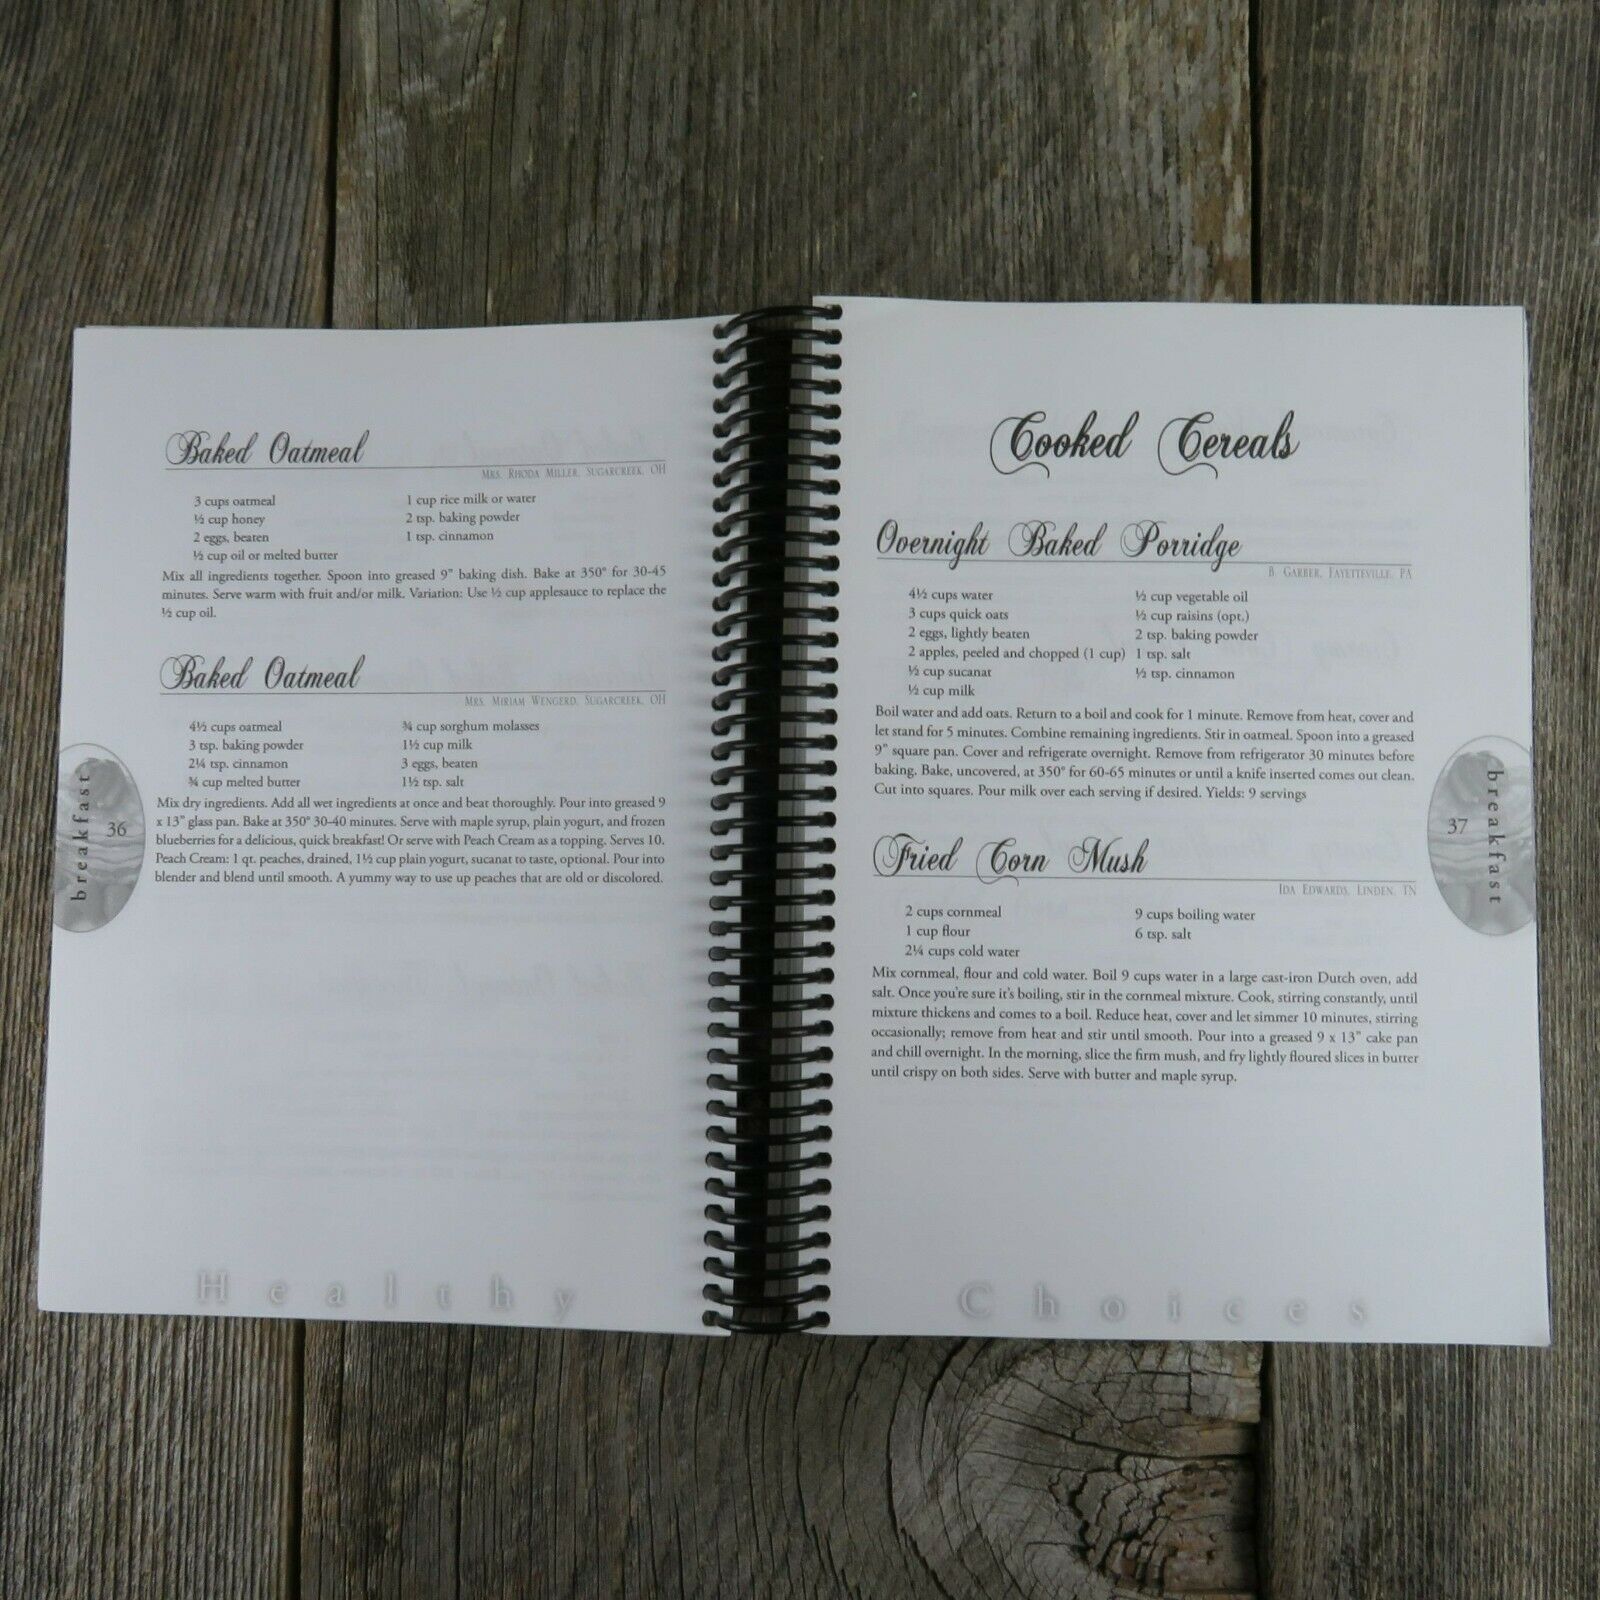 Baked Oatmeal
Mrs. Rhoda Miller, Sugarcreek, OH
3 cups oatmeal
½ cup honey
2 eggs, beaten
½ cup oil or melted butter
1 cup rice milk or water
2 tsp. baking powder
1 tsp. cinnamon
Mix all ingredients together. Spoon into greased 9" baking dish. Bake at 350° for 30-45
minutes. Serve warm with fruit and/or milk. Variation: Use ½ cup applesauce to replace the
½ cup oil.
Baked Oatmeal
Mrs. Miriam Wengerd, Sugarcreek, OH
4½ cups oatmeal
3 tsp. baking powder
2¼ tsp. cinnamon
¾ cup melted butter
¾ cup sorghum molasses
1½ cup milk
3 eggs, beaten
1½ tsp. salt
Mix dry ingredients. Add all wet ingredients at once and beat thoroughly. Pour into greased 9
x 13" glass pan. Bake at 350° 30-40 minutes. Serve with maple syrup, plain yogurt, and frozen
blueberries for a delicious, quick breakfast! Or serve with Peach Cream as a topping. Serves 10.
Peach Cream: 1 qt. peaches, drained, 1½ cup plain yogurt, sucanat to taste, optional. Pour into
blender and blend until smooth. A yummy way to use up peaches that are old or discolored.
breakfast
36
Healthy
Cooked Cereals
Overnight Baked Porridge
B. Garber, Fayetteville, PA
4½ cups water
3 cups quick oats
2 eggs, lightly beaten
2 apples, peeled and chopped (1 cup)
½ cup sucanat
½ cup milk
½ cup vegetable oil
½ cup raisins (opt.)
2 tsp. baking powder
1 tsp. salt
½ tsp. cinnamon
Boil water and add oats. Return to a boil and cook for 1 minute. Remove from heat, cover and
let stand for 5 minutes. Combine remaining ingredients. Stir in oatmeal. Spoon into a greased
9" square pan. Cover and refrigerate overnight. Remove from refrigerator 30 minutes before
baking. Bake, uncovered, at 350° for 60-65 minutes or until a knife inserted comes out clean.
Cut into squares. Pour milk over each serving if desired. Yields: 9 servings
Fried Corn Mush
Ida Edwards, Linden, TN
2 cups cornmeal
1 cup flour
2¼ cups cold water
9 cups boiling water
6 tsp. salt
Mix cornmeal, flour and cold water. Boil 9 cups water in a large cast-iron Dutch oven, add
salt. Once you're sure it's boiling, stir in the cornmeal mixture. Cook, stirring constantly, until
mixture thickens and comes to a boil. Reduce heat, cover and let simmer 10 minutes, stirring
occasionally; remove from heat and stir until smooth. Pour into a greased 9 x 13" cake pan
and chill overnight. In the morning, slice the firm mush, and fry lightly floured slices in butter
until crispy on both sides. Serve with butter and maple syrup.
37
breakfast
Choices